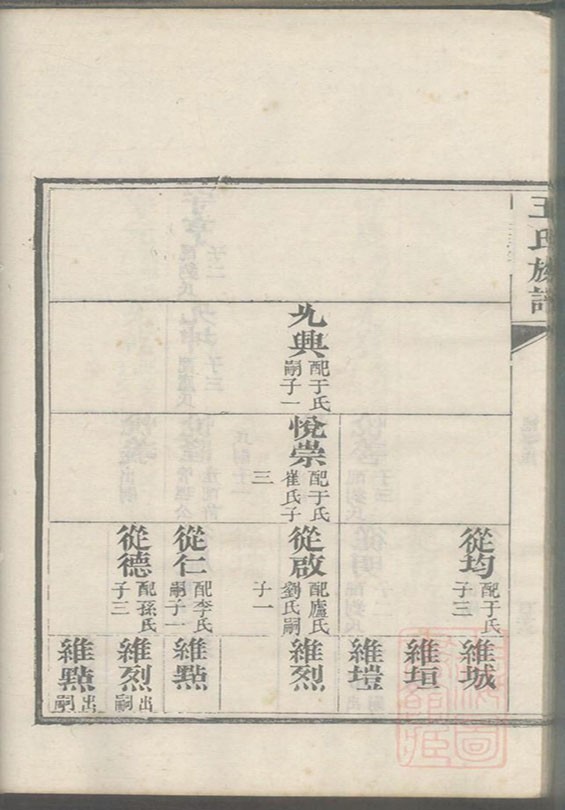 王氏族譜
九興
配于氏
嗣子一
悅崇
配于氏
崔氏子
三
從均
配于氏
子三
從啟
配盧氏
劉氏嗣
子一
從仁
配李氏
嗣子一
從德
配孫氏
子三
維城
維垣
維塏
維烈
維點
維烈
出
嗣
維點
出
嗣